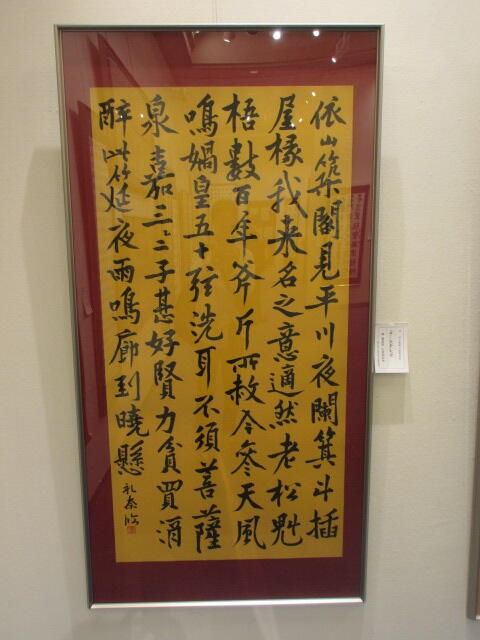 依山築閣見平川夜闌箕斗插
屋椽我来名之意適然老松魁
梧數百年斧斤所赦今參天風
鳴媧皇五十弦洗耳不須菩薩
泉嘉三二子甚好賢力貧買酒
醉此筵夜雨鳴廊到曉懸
礼泰臨